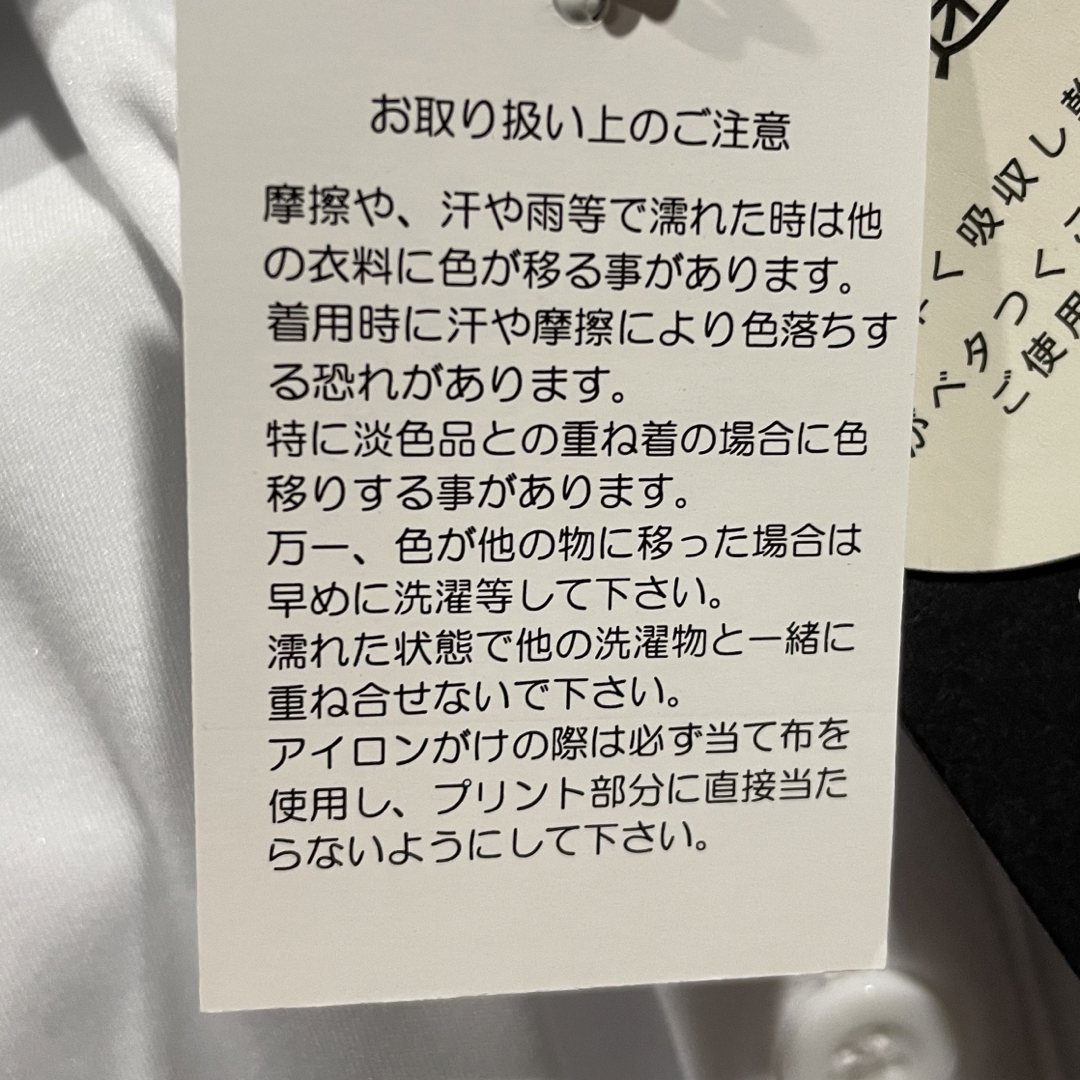 お取り扱い上のご注意
摩擦や、汗や雨等で濡れた時は他
の衣料に色が移る事があります。
着用時に汗や摩擦により色落ちす
る恐れがあります。
特に淡色品との重ね着の場合に色
移りする事があります。
万一、色が他の物に移った場合は
早めに洗濯等して下さい。
濡れた状態で他の洗濯物と一緒に
重ね合せないで下さい。
アイロンがけの際は必ず当て布を
使用し、プリント部分に直接当た
らないようにして下さい。
く吸収し乾
ベタつくこ
ご使用